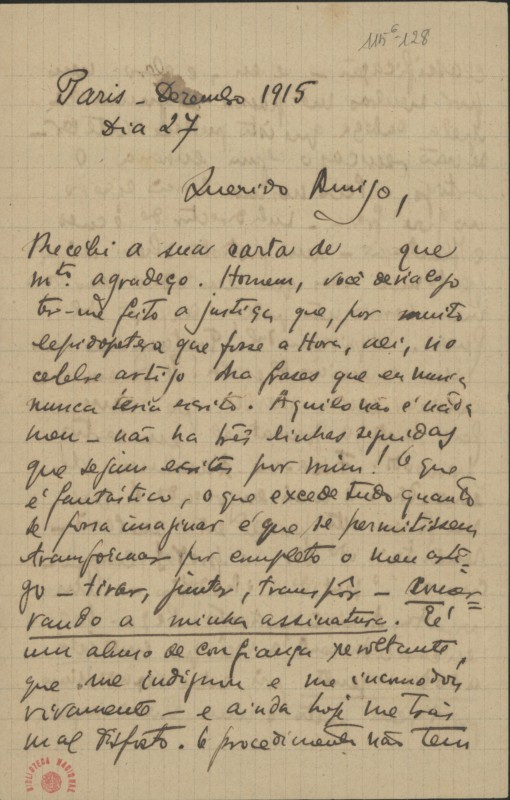 115⁶-128
Paris - Dezembro 1915
Dia 27
Querido Amigo,
Recebi a sua carta de que
mto agradeço. Homem, você devia logo
ter-me feito a justiça que, por muito
lepidoptera que fosse a Hora, ali, no
celebre artigo ha frases que eu nunca
nunca teria escrito. Aquilo não é nada
meu - não ha três linhas seguidas
que sejam escritas por mim! O que
é fantástico, o que excede tudo quanto
se possa imaginar é que se permitissem
transformar por completo o meu arti-
go - tirar, juntar, transpôr -
vando a minha assinatura. É
um abuso de confiança revoltante,
que me indignou e me incomodou
vivamente - e ainda hoje me traz
mal disposto. O procedimento não tem
BIBLIOTECA NACIONAL